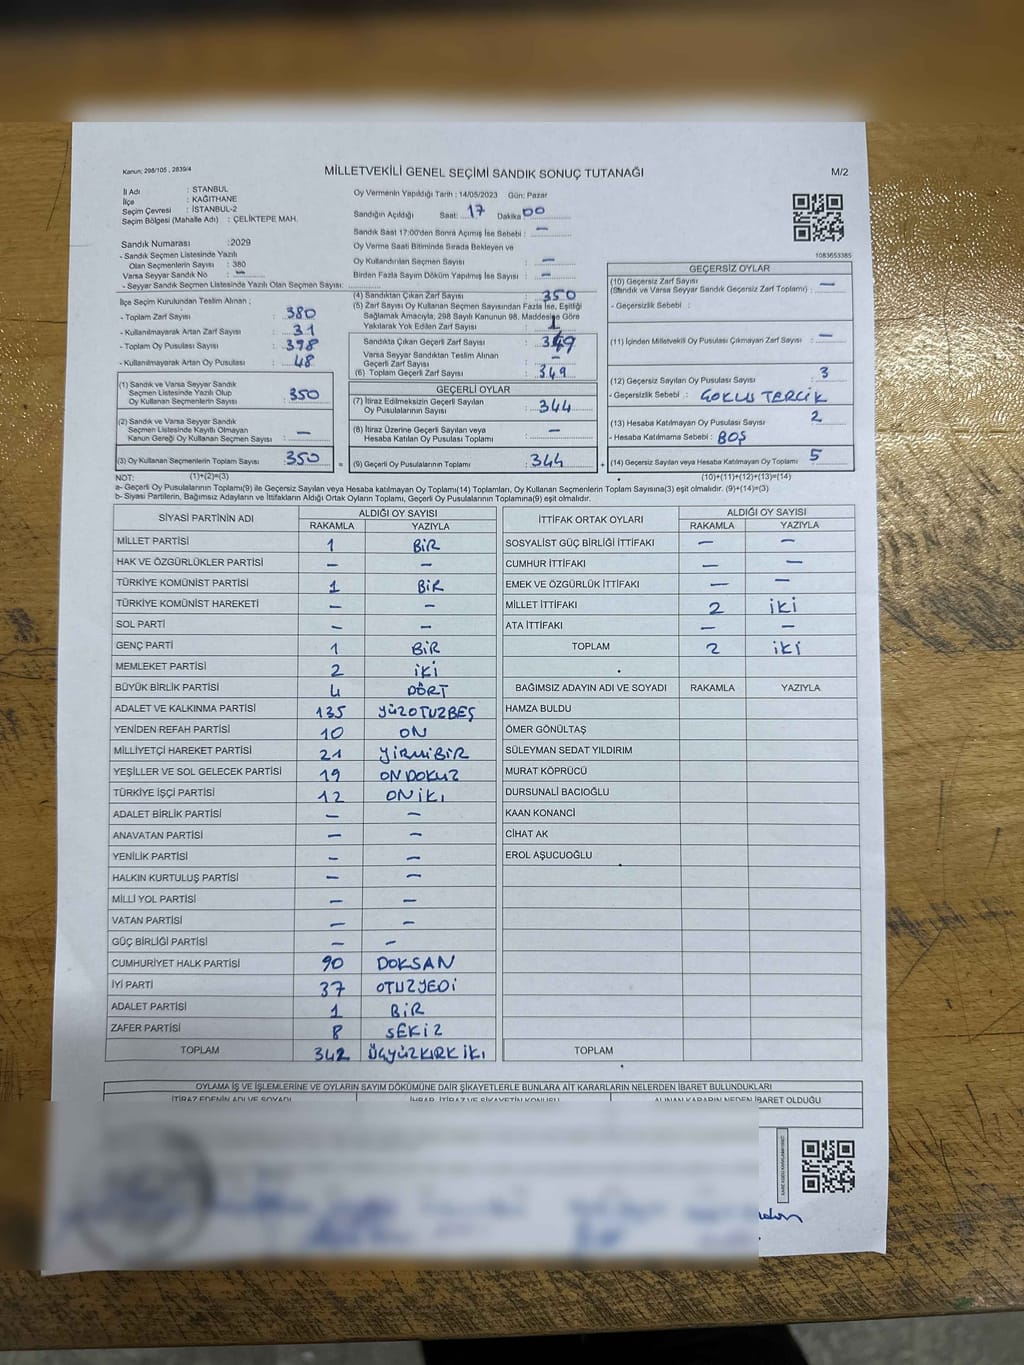 Kanun: 298/105 , 2839/4
MİLLETVEKİLİ GENEL SEÇİMİ SANDIK SONUÇ TUTANAĞI
M/2
İl Adı : STANBUL
İlçe : KAĞITHANE
Seçim Çevresi : İSTANBUL-2
Seçim Bölgesi (Mahalle Adı) : ÇELİKTEPE MAH.
Sandık Numarası :2029
- Sandık Seçmen Listesinde Yazılı
Olan Seçmenlerin Sayısı : 380
Varsa Seyyar Sandık No : –
- Seyyar Sandık Seçmen Listesinde Yazılı Olan Seçmen Sayısı:
İlçe Seçim Kurulundan Teslim Alınan ;
- Toplam Zarf Sayısı : 380
- Kullanılmayarak Artan Zarf Sayısı : 31
- Toplam Oy Pusulası Sayısı : 398
- Kullanılmayarak Artan Oy Pusulası : 48
(1) Sandık ve Varsa Seyyar Sandık
Seçmen Listesinde Yazılı Olup
Oy Kullanan Seçmenlerin Sayısı : 350
(2) Sandık ve Varsa Seyyar Sandık
Seçmen Listesinde Kayıtlı Olmayan
Kanun Gereği Oy Kullanan Seçmen Sayısı : –
(3) Oy Kullanan Seçmenlerin Toplam Sayısı : 350
Oy Vermenin Yapıldığı Tarih : 14/05/2023 Gün: Pazar
Sandığın Açıldığı Saat: 17 Dakika 00
Sandık Saat 17:00'den Sonra Açımış İse Sebebi : –
Oy Verme Saati Bitiminde Sırada Bekleyen ve
Oy Kullandırılan Seçmen Sayısı : –
Birden Fazla Sayım Döküm Yapılmış İse Sayısı : –
(4) Sandıktan Çıkan Zarf Sayısı : 350
(5) Zarf Sayısı Oy Kullanan Seçmen Sayısından Fazla İse, Eşitliği
Sağlamak Amacıyla, 298 Sayılı Kanunun 98. Maddesine Göre
Yakılarak Yok Edilen Zarf Sayısı : 1
Sandıkta Çıkan Geçerli Zarf Sayısı : 349
Varsa Seyyar Sandıktan Teslim Alınan
Geçerli Zarf Sayısı : –
(6) Toplam Geçerli Zarf Sayısı : 349
GEÇERLİ OYLAR
(7) İtiraz Edilmeksizin Geçerli Sayılan
Oy Pusulalarının Sayısı : 344
(8) İtiraz Üzerine Geçerli Sayılan veya
Hesaba Katılan Oy Pusulası Toplamı : –
= (9) Geçerli Oy Pusulalarının Toplamı : 344
1083653385
GEÇERSİZ OYLAR
(10) Geçersiz Zarf Sayısı
(Sandık ve Varsa Seyyar Sandık Geçersiz Zarf Toplamı) : –
- Geçersizlik Sebebi :
(11) İçinden Milletvekili Oy Pusulası Çıkmayan Zarf Sayısı : –
(12) Geçersiz Sayılan Oy Pusulası Sayısı : 3
- Geçersizlik Sebebi : ÇOKLU TERCİK
(13) Hesaba Katılmayan Oy Pusulası Sayısı : 2
- Hesaba Katılmama Sebebi : BOŞ
+ (14) Geçersiz Sayılan veya Hesaba Katılmayan Oy Toplamı : 5
NOT: (1)+(2)=(3) (10)+(11)+(12)+(13)=(14)
a- Geçerli Oy Pusulalarının Toplamı(9) ile Geçersiz Sayılan veya Hesaba Katılmayan oy Toplamı(14) Toplamları, Oy Kullanan Seçmenlerin Toplam Sayısına(3) eşit olmalıdır. (9)+(14)=(3)
b- Siyasi Partilerin, Bağımsız Adayların ve İttifakların Aldığı Ortak Oyların Toplamı, Geçerli Oy Pusulalarının Toplamına(9) eşit olmalıdır.
SİYASİ PARTİNİN ADI ALDIĞI OY SAYISI
RAKAMLA YAZIYLA
MİLLET PARTİSİ 1 BİR
HAK VE ÖZGÜRLÜKLER PARTİSİ – –
TÜRKİYE KOMÜNİST PARTİSİ 1 BİR
TÜRKİYE KOMÜNİST HAREKETİ – –
SOL PARTİ – –
GENÇ PARTİ 1 BİR
MEMLEKET PARTİSİ 2 İKİ
BÜYÜK BİRLİK PARTİSİ 4 DÖRT
ADALET VE KALKINMA PARTİSİ 135 YÜZOTUZBEŞ
YENİDEN REFAH PARTİSİ 10 ON
MİLLİYETÇİ HAREKET PARTİSİ 21 YİRMİBİR
YEŞİLLER VE SOL GELECEK PARTİSİ 19 ONDOKUZ
TÜRKİYE İŞÇİ PARTİSİ 12 ONİKİ
ADALET BİRLİK PARTİSİ – –
ANAVATAN PARTİSİ – –
YENİLİK PARTİSİ – –
HALKIN KURTULUŞ PARTİSİ – –
MİLLİ YOL PARTİSİ – –
VATAN PARTİSİ – –
GÜÇ BİRLİĞİ PARTİSİ – –
CUMHURİYET HALK PARTİSİ 90 DOKSAN
İYİ PARTİ 37 OTUZYEDİ
ADALET PARTİSİ 1 BİR
ZAFER PARTİSİ 8 SEKİZ
TOPLAM 342 ÜÇYÜZKIRKİKİ
İTTİFAK ORTAK OYLARI ALDIĞI OY SAYISI
RAKAMLA YAZIYLA
SOSYALİST GÜÇ BİRLİĞİ İTTİFAKI – –
CUMHUR İTTİFAKI – –
EMEK VE ÖZGÜRLÜK İTTİFAKI – –
MİLLET İTTİFAKI 2 İKİ
ATA İTTİFAKI – –
TOPLAM 2 İKİ
BAĞIMSIZ ADAYIN ADI VE SOYADI RAKAMLA YAZIYLA
HAMZA BULDU
ÖMER GÖNÜLTAŞ
SÜLEYMAN SEDAT YILDIRIM
MURAT KÖPRÜCÜ
DURSUNALİ BACIOĞLU
KAAN KONANCİ
CİHAT AK
EROL AŞUCUOĞLU
TOPLAM
OYLAMA İŞ VE İŞLEMLERİNE VE OYLARIN SAYIM DÖKÜMÜNE DAİR ŞİKAYETLERLE BUNLARA AİT KARARLARIN NELERDEN İBARET BULUNDUKLARI
İTİRAZ EDENİN ADI VE SOYADI İHBAR, İTİRAZ VE ŞİKAYETİN KONUSU ALINAN KARARIN NEDEN İBARET OLDUĞU